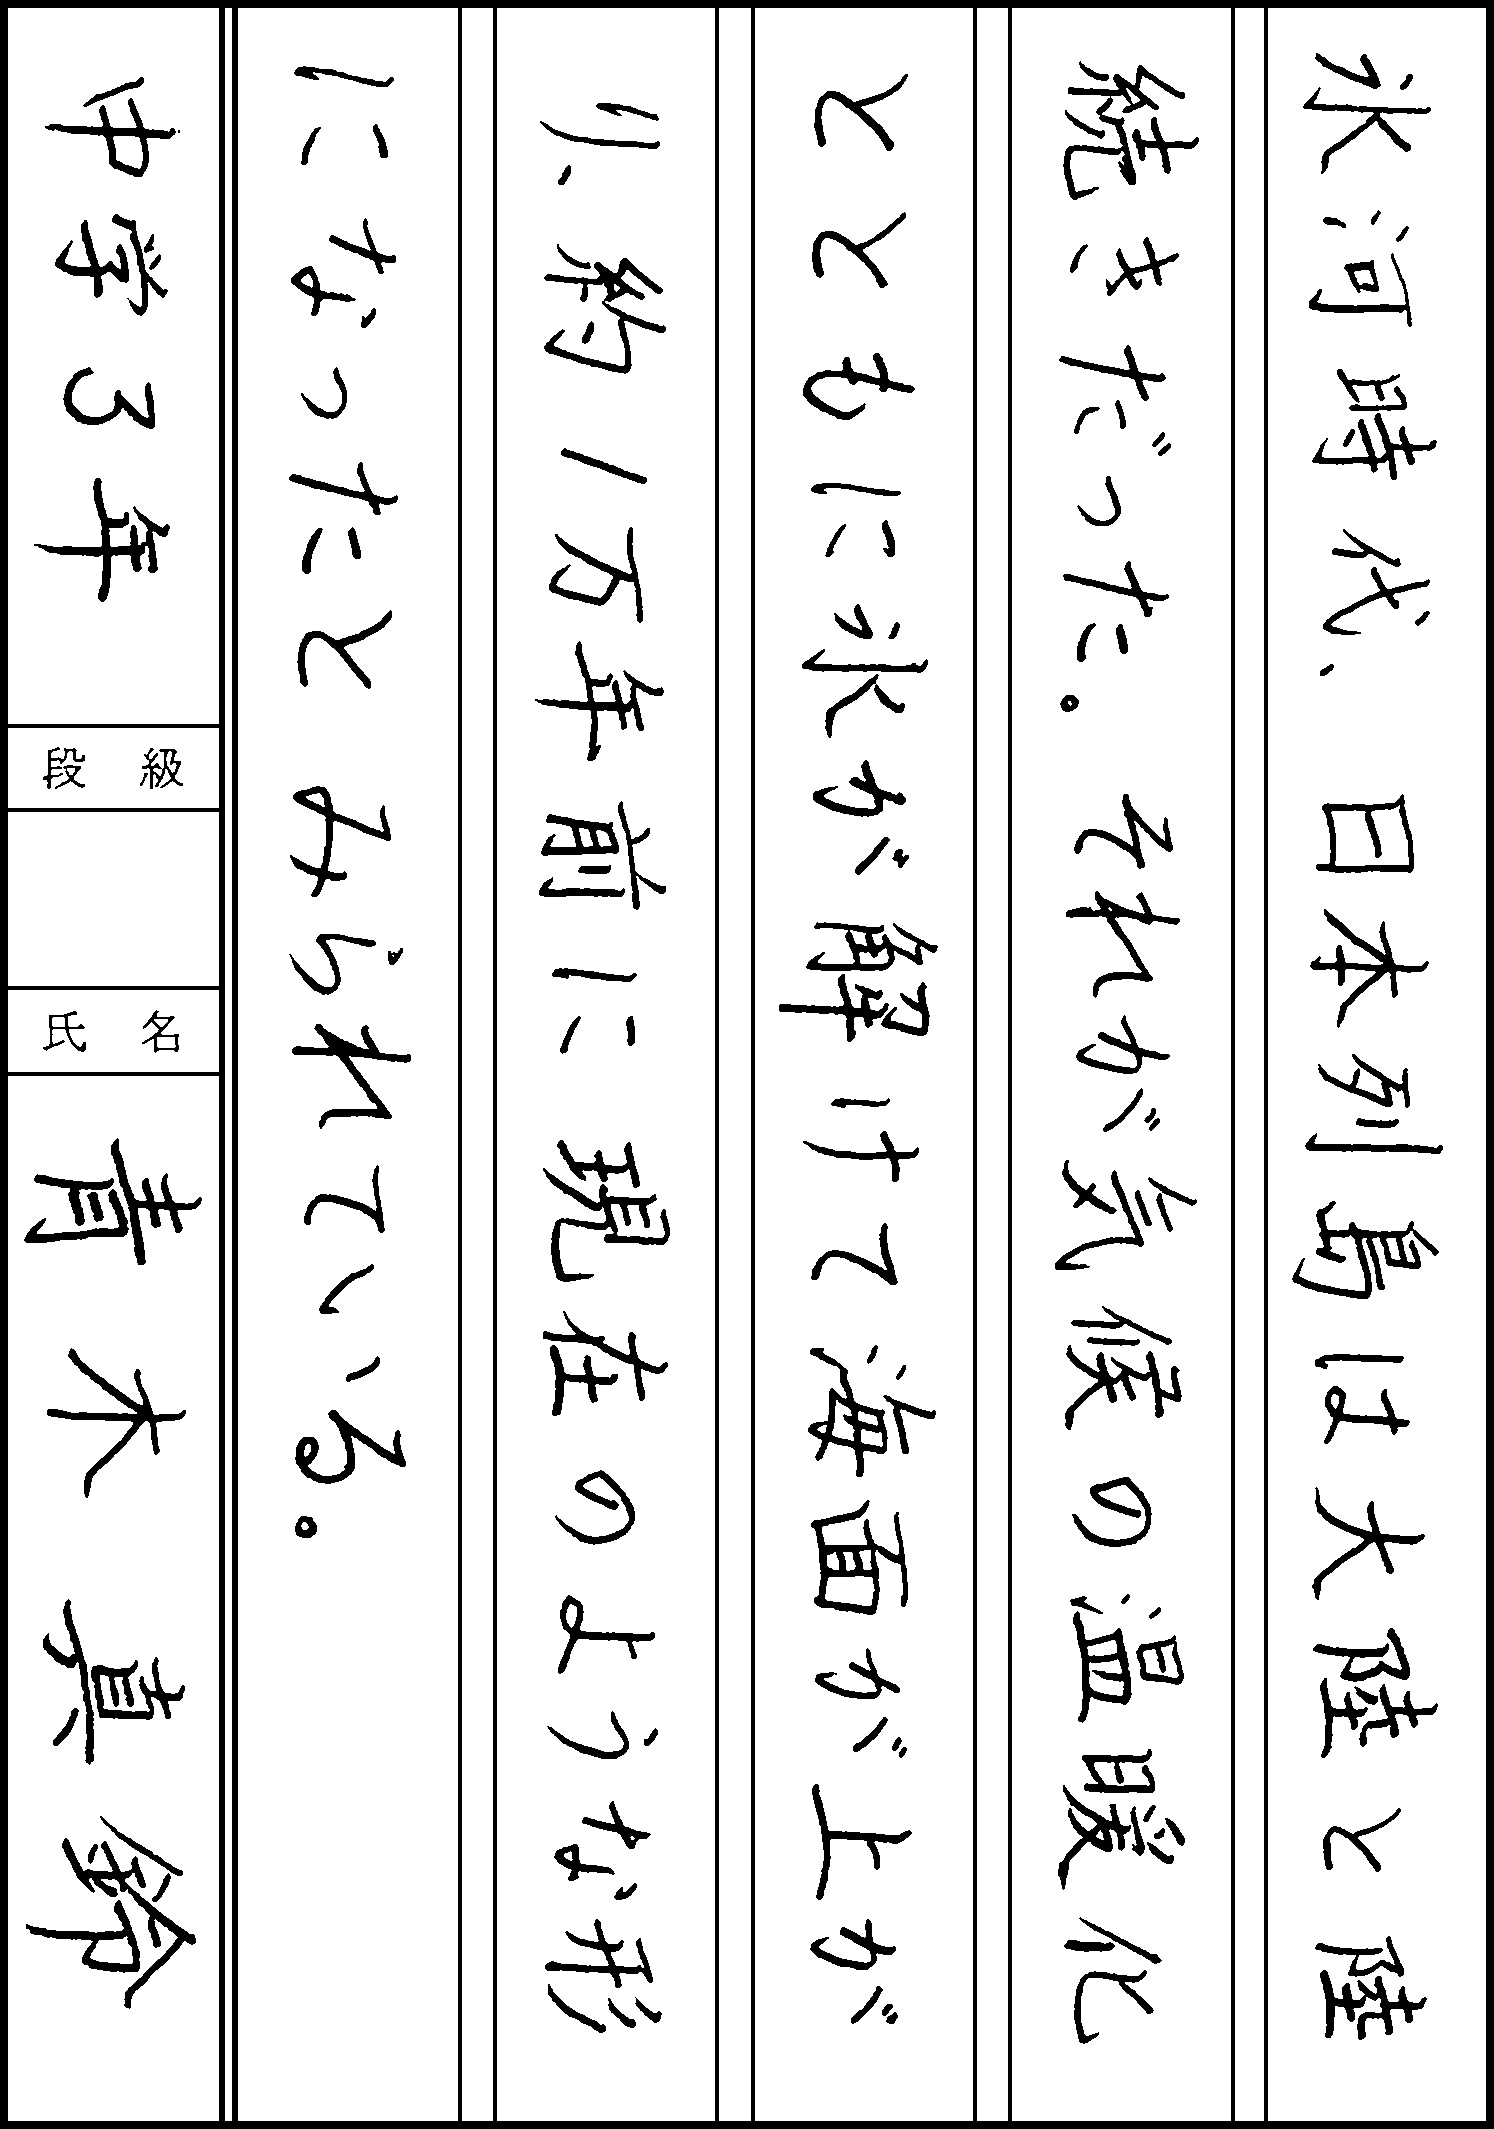 氷河時代、日本列島は大陸と陸
続きだった。それが気候の温暖化
とともに氷が解けて海面が上が
り、約1万年前に現在のような形
になったとみられている。
中学3年 段級 氏名 青木 真鈴